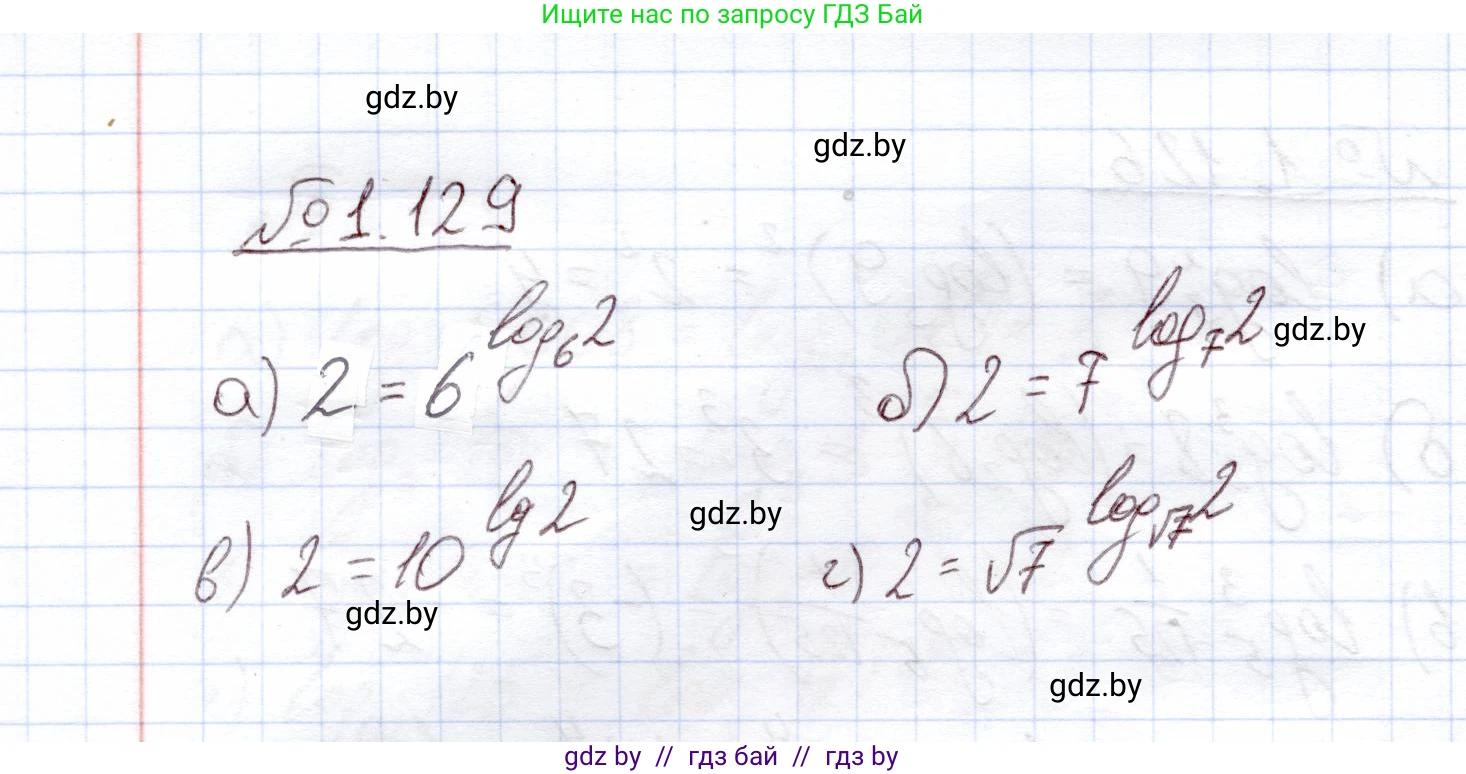 Ищите нас по запросу ГДЗ Бай
gdz.by
gdz.by
№ 1.129
а) 2 = 6^log₆2
б) 2 = 7^log₇2 gdz.by
в) 2 = 10^lg 2
gdz.by
г) 2 = √7^log_√7 2
gdz.by
gdz.by
gdz by // гдз бай // гдз by